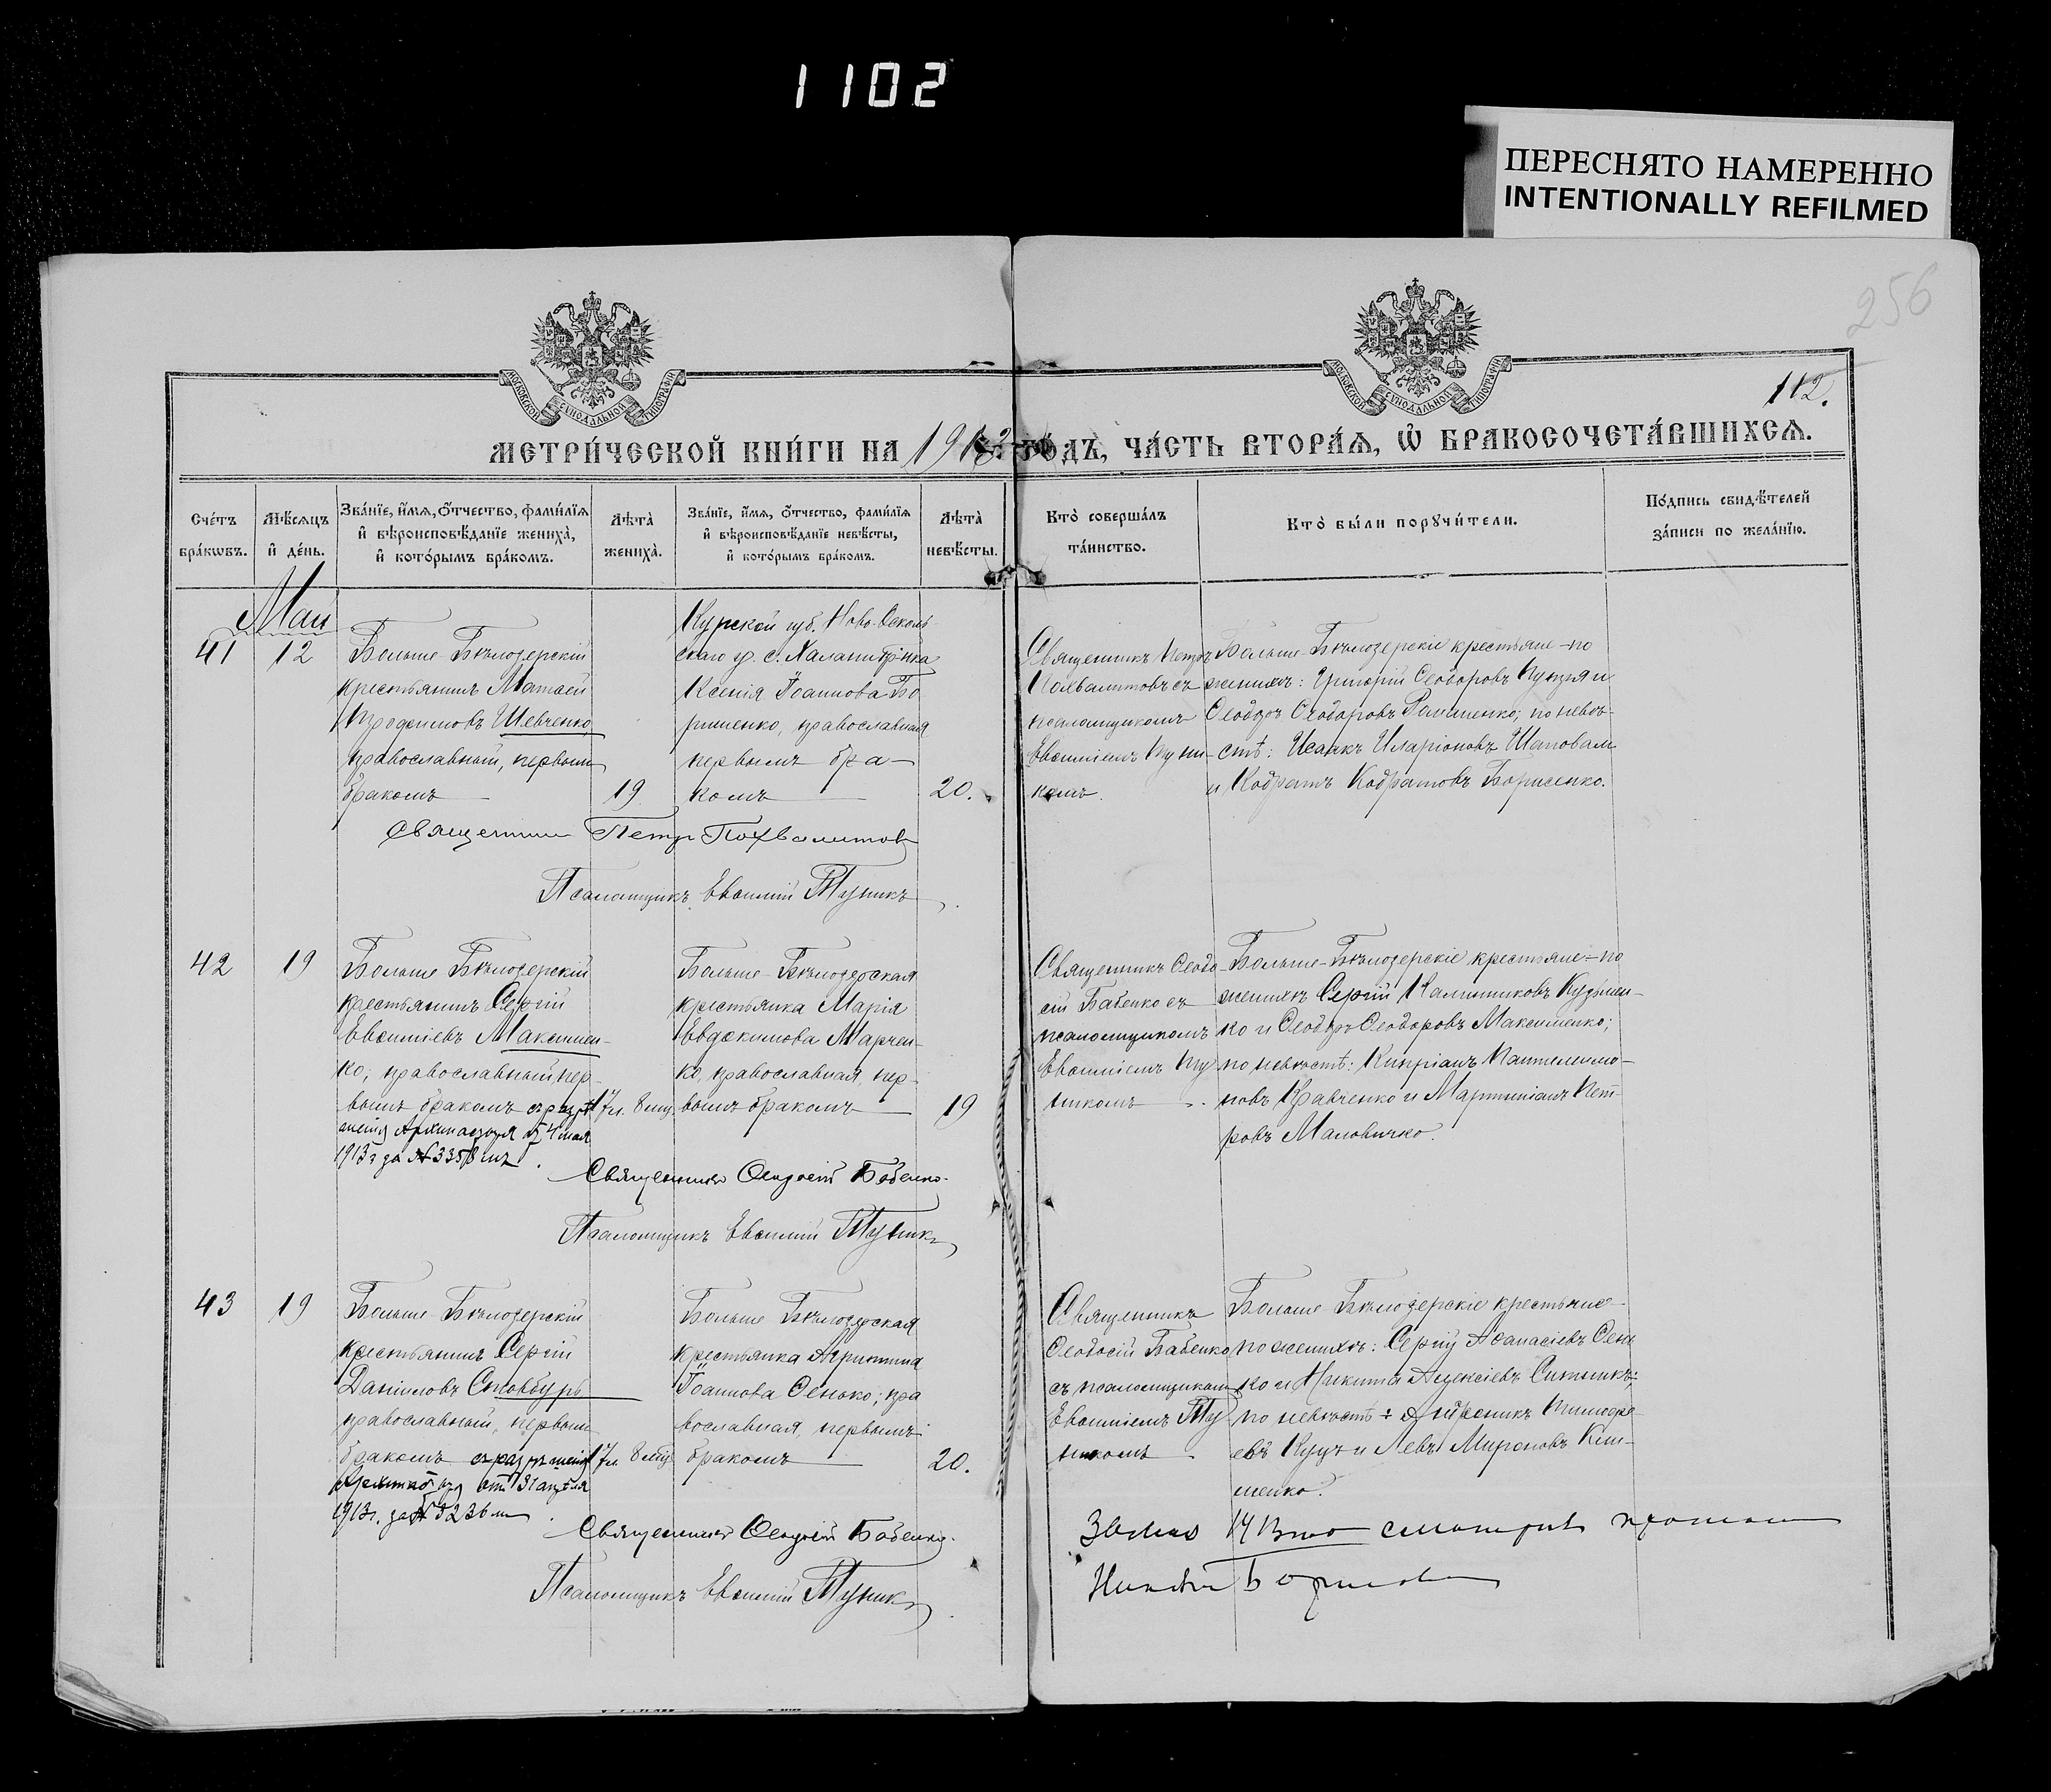 1102
ПЕРЕСНЯТО НАМЕРЕННО
INTENTIONALLY REFILMED
256
112.
МОСКОВСКОЙ СѴНОДАЛЬНОЙ ТИПОГРАФІИ
МОСКОВСКОЙ СѴНОДАЛЬНОЙ ТИПОГРАФІИ
МЕТРИ́ЧЕСКОЙ КНИ́ГИ НА 1913 ГО́ДЪ, ЧА́СТЬ ВТОРА́Ѧ, Ѽ БРАКОСОЧЕТА́ВШИХСѦ.
Сче́тъ бра́кѡвъ.
Мѣ́сѧцъ и҆ де́нь.
Зва́нїе, и҆́мѧ, ѻ҆́тчество, фами́лїѧ и҆ вѣроисповѣ́данїе жениха̀, и҆ кото́рымъ бра́комъ.
Лѣта̀ жениха̀.
Зва́нїе, и҆́мѧ, ѻ҆́тчество, фами́лїѧ и҆ вѣроисповѣ́данїе невѣ́сты, и҆ кото́рымъ бра́комъ.
Лѣта̀ невѣ́сты.
Кто̀ соверша́лъ та́инство.
Кто̀ бы́ли порꙋчи́тели.
По́дпись свидѣ́телей за́писи по жела́нїю.
Май
41
12
Больше-Бѣлозерскій
крестьянинъ Матѳей
Трофимовъ Шевченко,
православный, первымъ
бракомъ
19
Курской губ. Ново-Осколь
скаго у. с.
Ксенія Іоаннова Бо
рисенко, православная
первымъ бра-
комъ
20.
Священникъ Петръ
Похвалитовъ съ
псаломщикомъ
Евѳиміемъ Туни-
комъ.
Больше-Бѣлозерскіе крестьяне-по
женихѣ: Григорій Ѳеодоровъ и
Ѳеодоръ Ѳеодоровъ; по невѣ-
стѣ: Исаакъ Иларіоновъ Шаповалъ
и Кодратъ Кодратовъ Борисенко.
Священникъ Петръ Похвалитовъ
Псаломщикъ Евѳимій Туникъ
42
19
Больше Бѣлозерскій
крестьянинъ Сергій
Евѳиміевъ Максимен-
ко, православный, пер-
вымъ бракомъ съ разрѣ
шенія Архипастыря отъ 4 мая
1913 г за №
17 л. 8 мѣс.
Больше-Бѣлозерская
крестьянка Марія
Евдокимова Марчен-
ко, православная, пер-
вымъ бракомъ
19
Священникъ Ѳеодо-
сій Бабенко съ
псаломщикомъ
Евѳиміемъ Ту
никомъ
Больше-Бѣлозерскіе крестьяне-по
женихѣ Сергій Калинниковъ Кузьмен-
ко и Ѳеодоръ Ѳеодоровъ Максименко;
по невѣстѣ: Кипріанъ Пантелимо-
новъ Кравченко и Мартиніанъ Пет-
ровъ Маловичко.
Священникъ Ѳеодосій Бабенко.
Псаломщикъ Евѳимій Туникъ
43
19
Больше-Бѣлозерскій
крестьянинъ Сергій
Даніиловъ Стовбуръ
православный, первымъ
бракомъ съ разрѣшенія
Архипастыря отъ апрѣля
1913 г. за № 3236
17 л. 8 мѣс
Больше Бѣлозерская
крестьянка Агриппина
Іоаннова Сенько; пра
вославная, первымъ
бракомъ
20.
Священникъ
Ѳеодосій Бабенко
съ псаломщикомъ
Евѳиміемъ Ту
никомъ
Больше Бѣлозерскіе крестьяне-
по женихѣ: Сергій Аѳанасіевъ Сень
ко и Никита Алексіевъ Ситникъ;
по невѣстѣ: Андроникъ Тимоѳе-
евъ Куцъ и Левъ Мироновъ Кли-
менко.
Священникъ Ѳеодосій Бабенко.
Псаломщикъ Евѳимій Туникъ